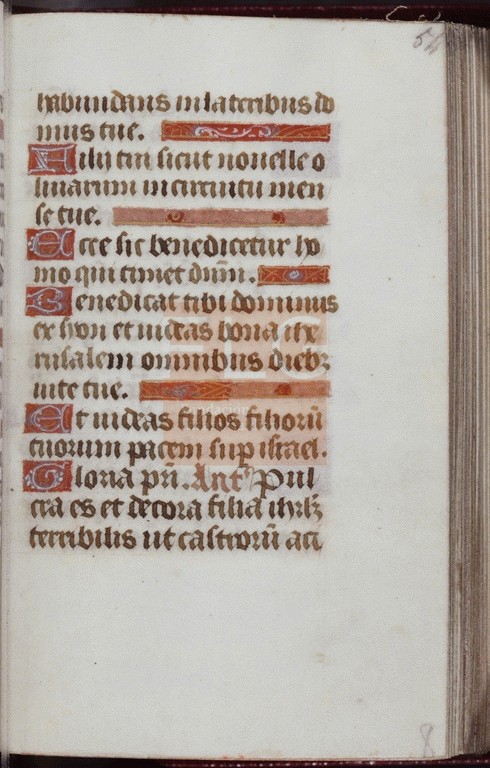 54
habundans in lateribus do
mus tue.
Filii tui sicut nouelle o
liuarum in circuitu men
se tue.
Ecce sic benedicetur ho
mo qui timet dnm̄.
Benedicat tibi dominus
ex syon et uideas bona ihe
rusalem omnibus diebꝫ
uite tue.
Et uideas filios filiorū
tuorum pacem sup israel.
Gloria pr̄i. Antᵃ Pul
cra es et decora filia ihrlꝫ
terribilis ut castrorū aci
8